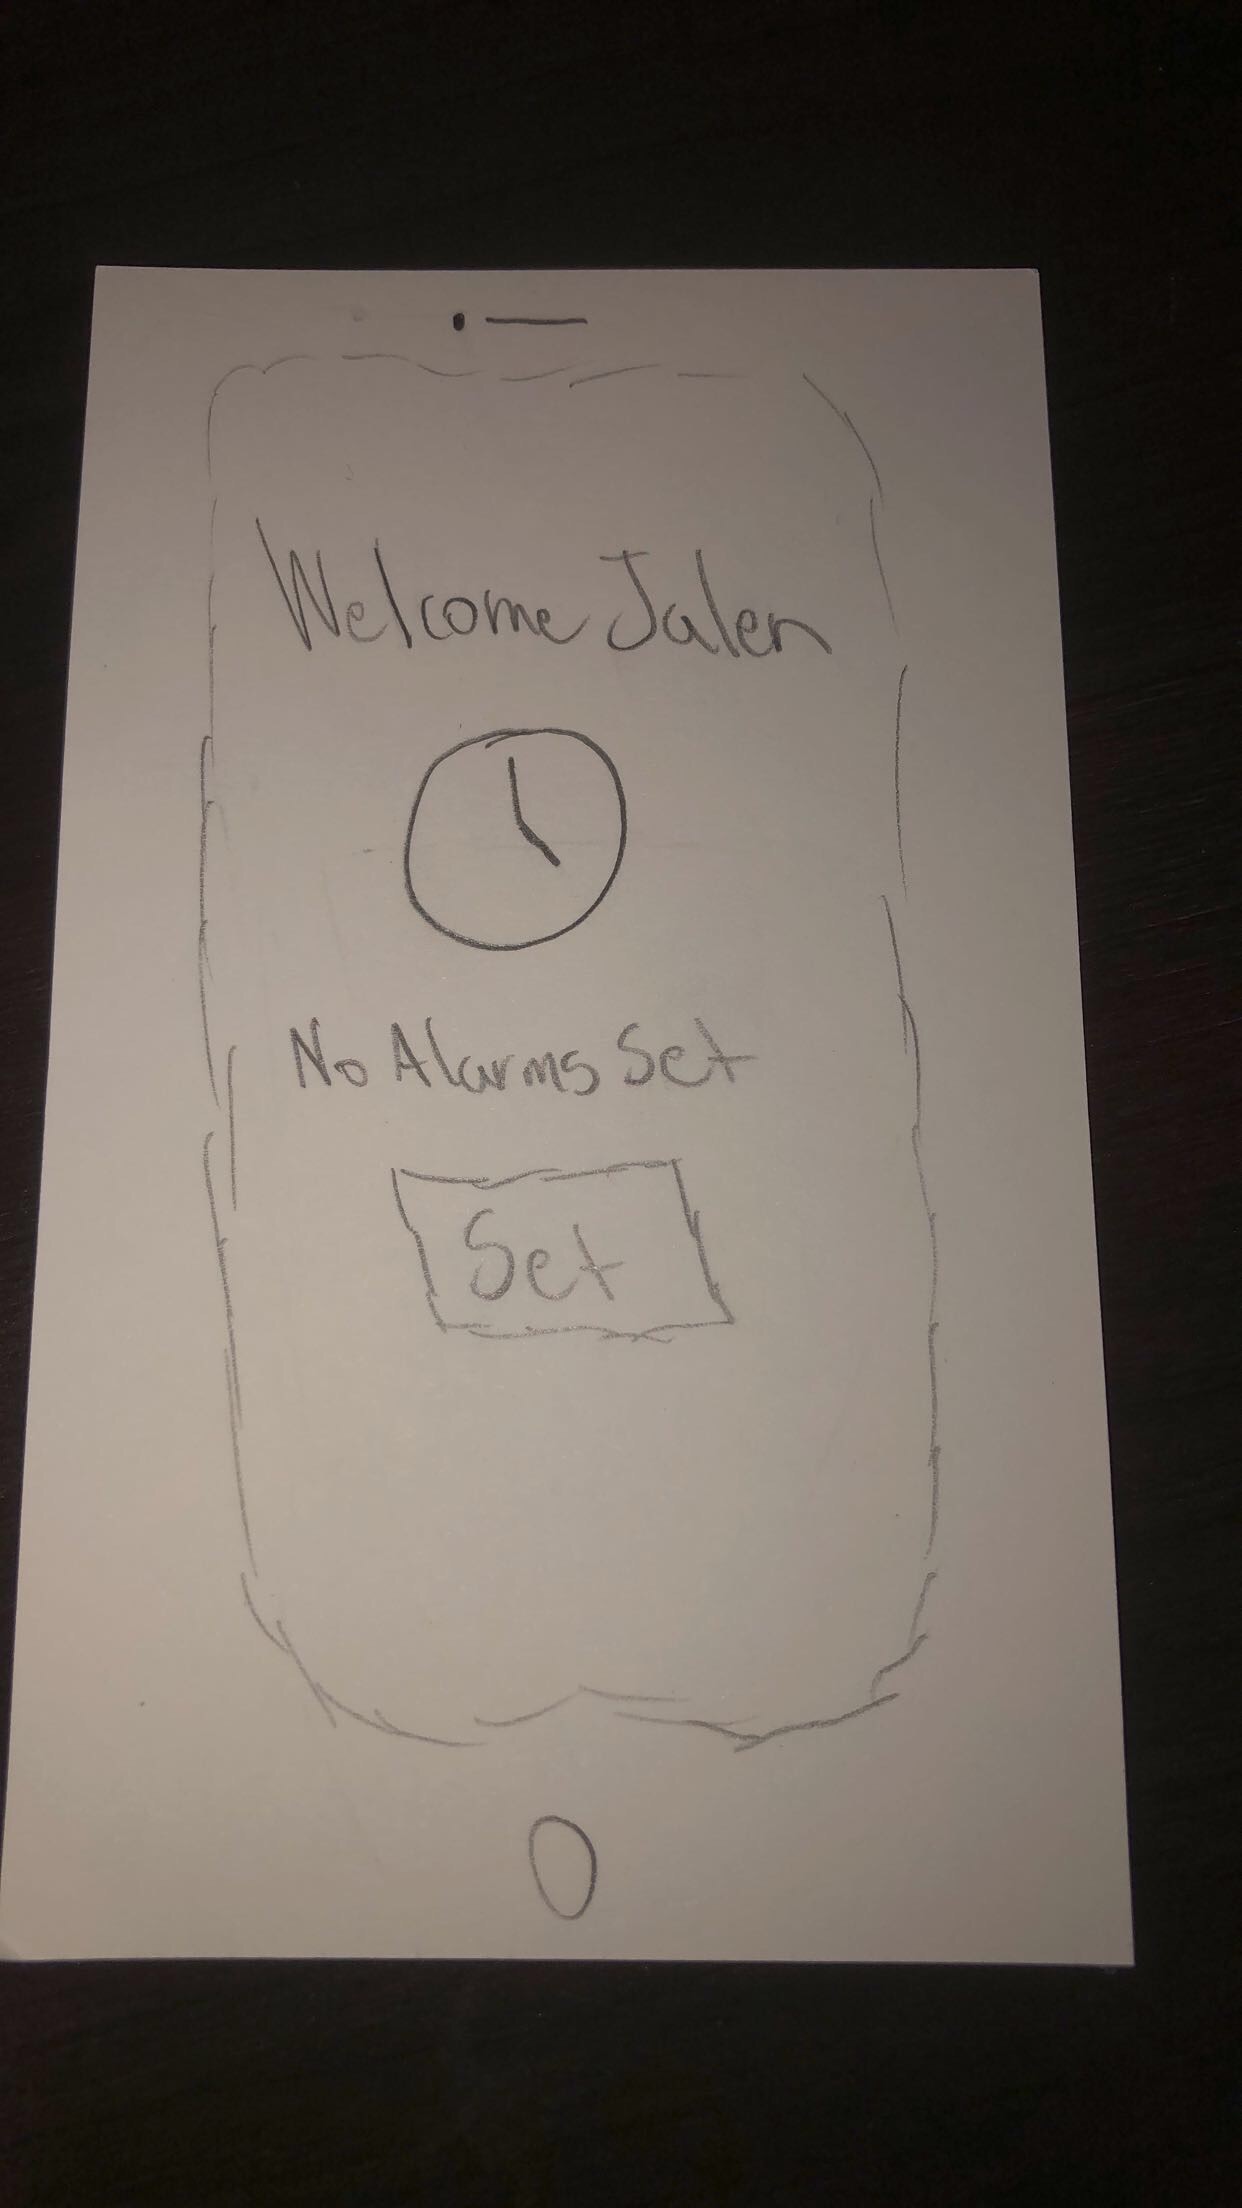 Welcome Jalen
No Alarms Set
Set